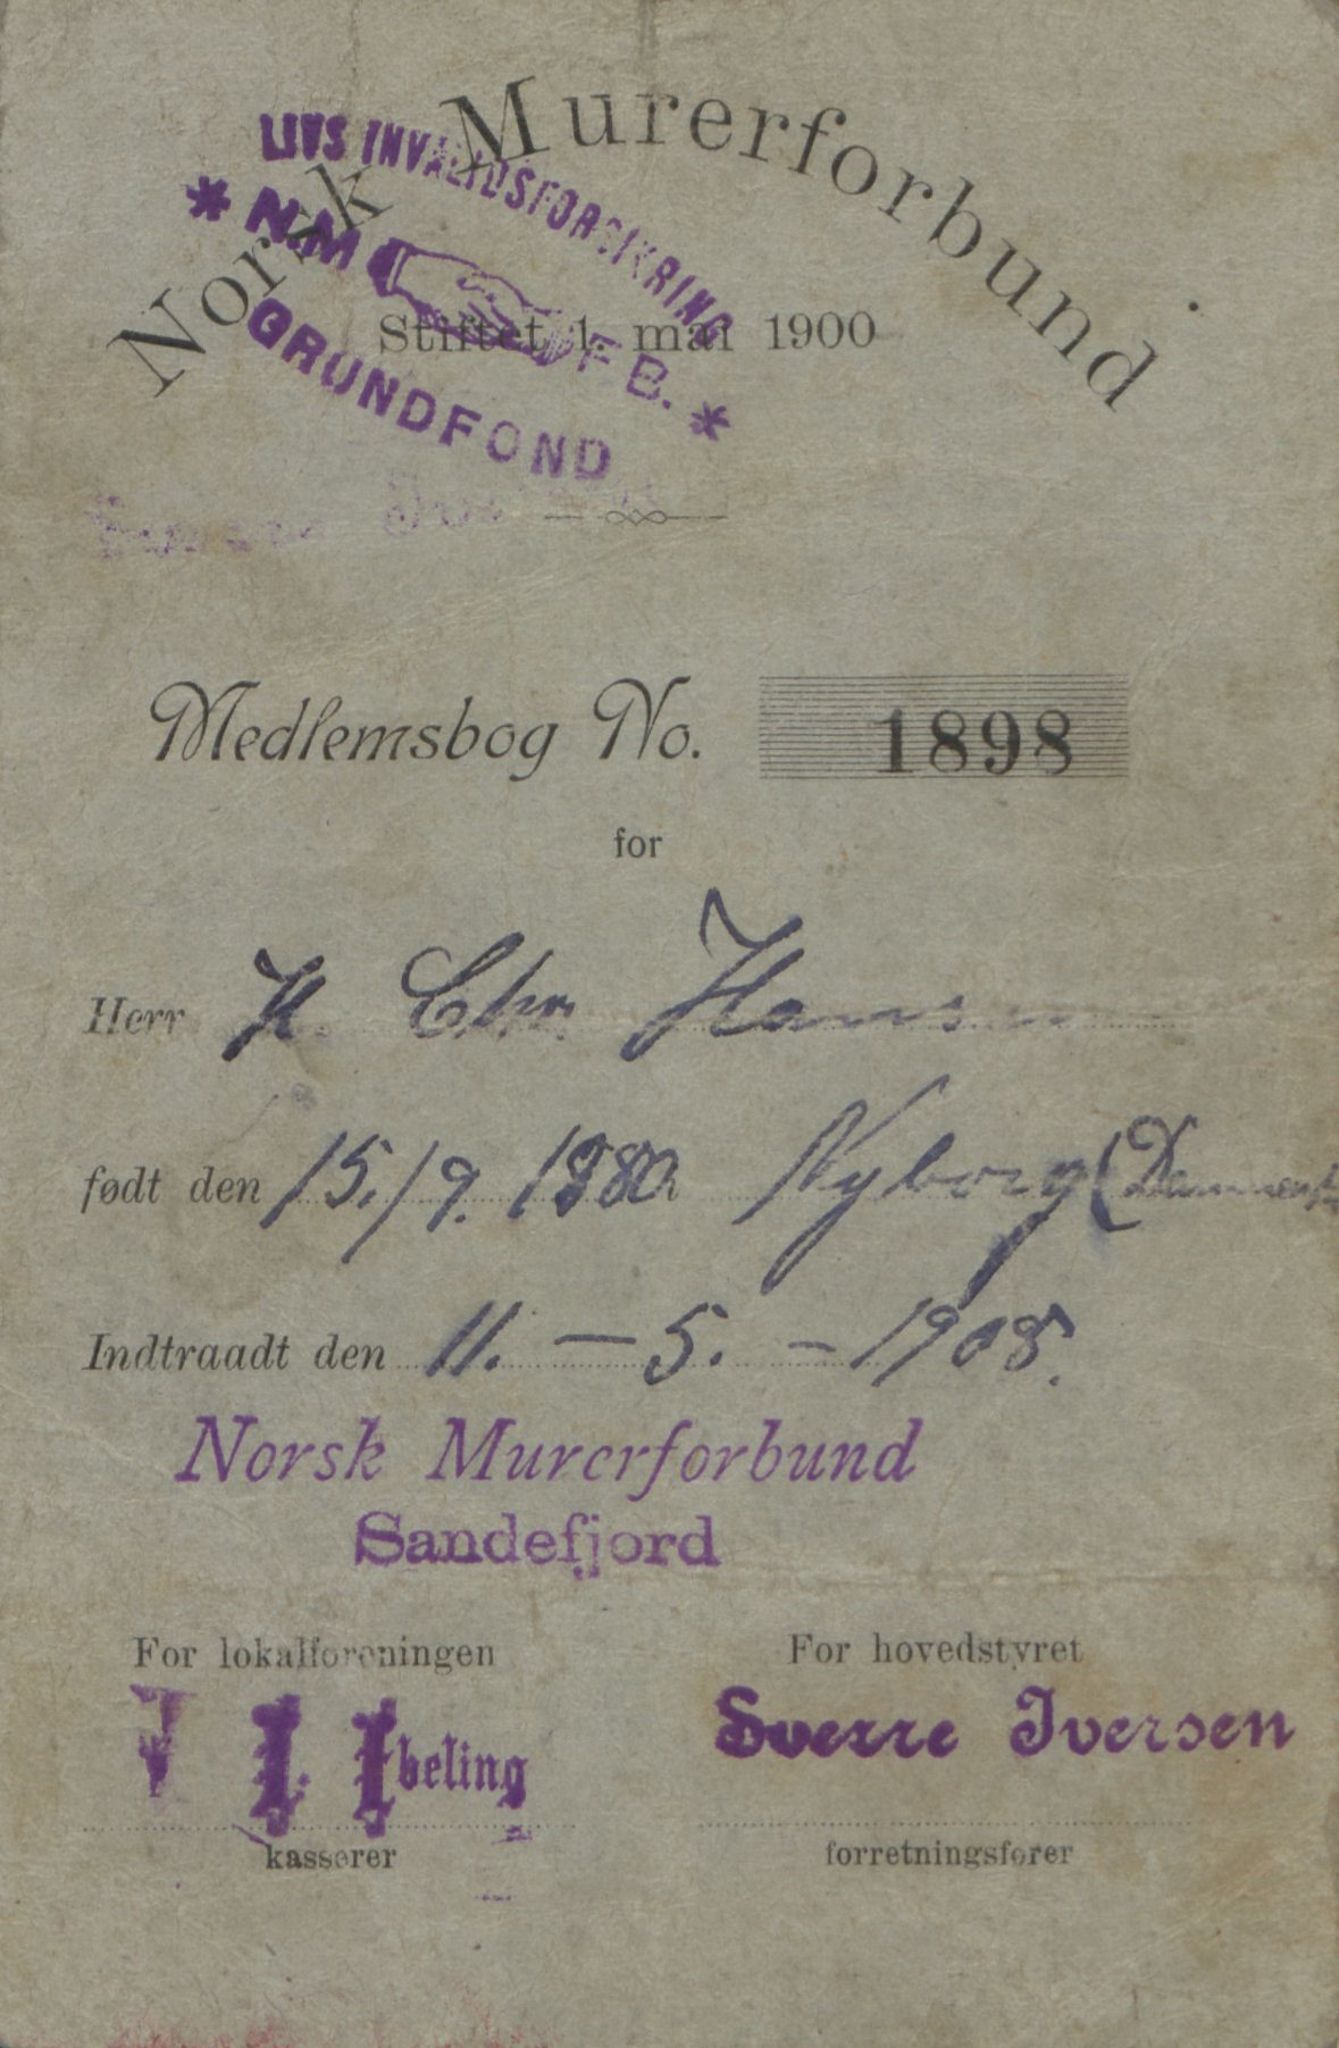 Norsk Murerforbund
LIVS INVALIDSFORSIKRING
* N.M F B. *
GRUNDFOND
Stiftet 1. mai 1900
Medlemsbog No. 1898
for
Herr H. Chr. Hansen
født den 15./9. 1880 Nyborg (Danmark
Indtraadt den 11. – 5. – 1908.
Norsk Murerforbund
Sandefjord
For lokalforeningen
For hovedstyret
Sverre Iversen
kasserer
forretningsfører